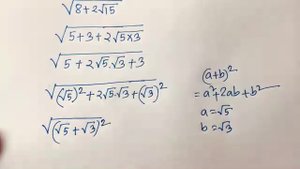 √8+2√15
√5+3+2√5×3
√5+2√5.√3+3
√(√5)²+2√5.√3+(√3)²
√(√5+√3)²
(a+b)²
=a²+2ab+b²
a=√5
b=√3